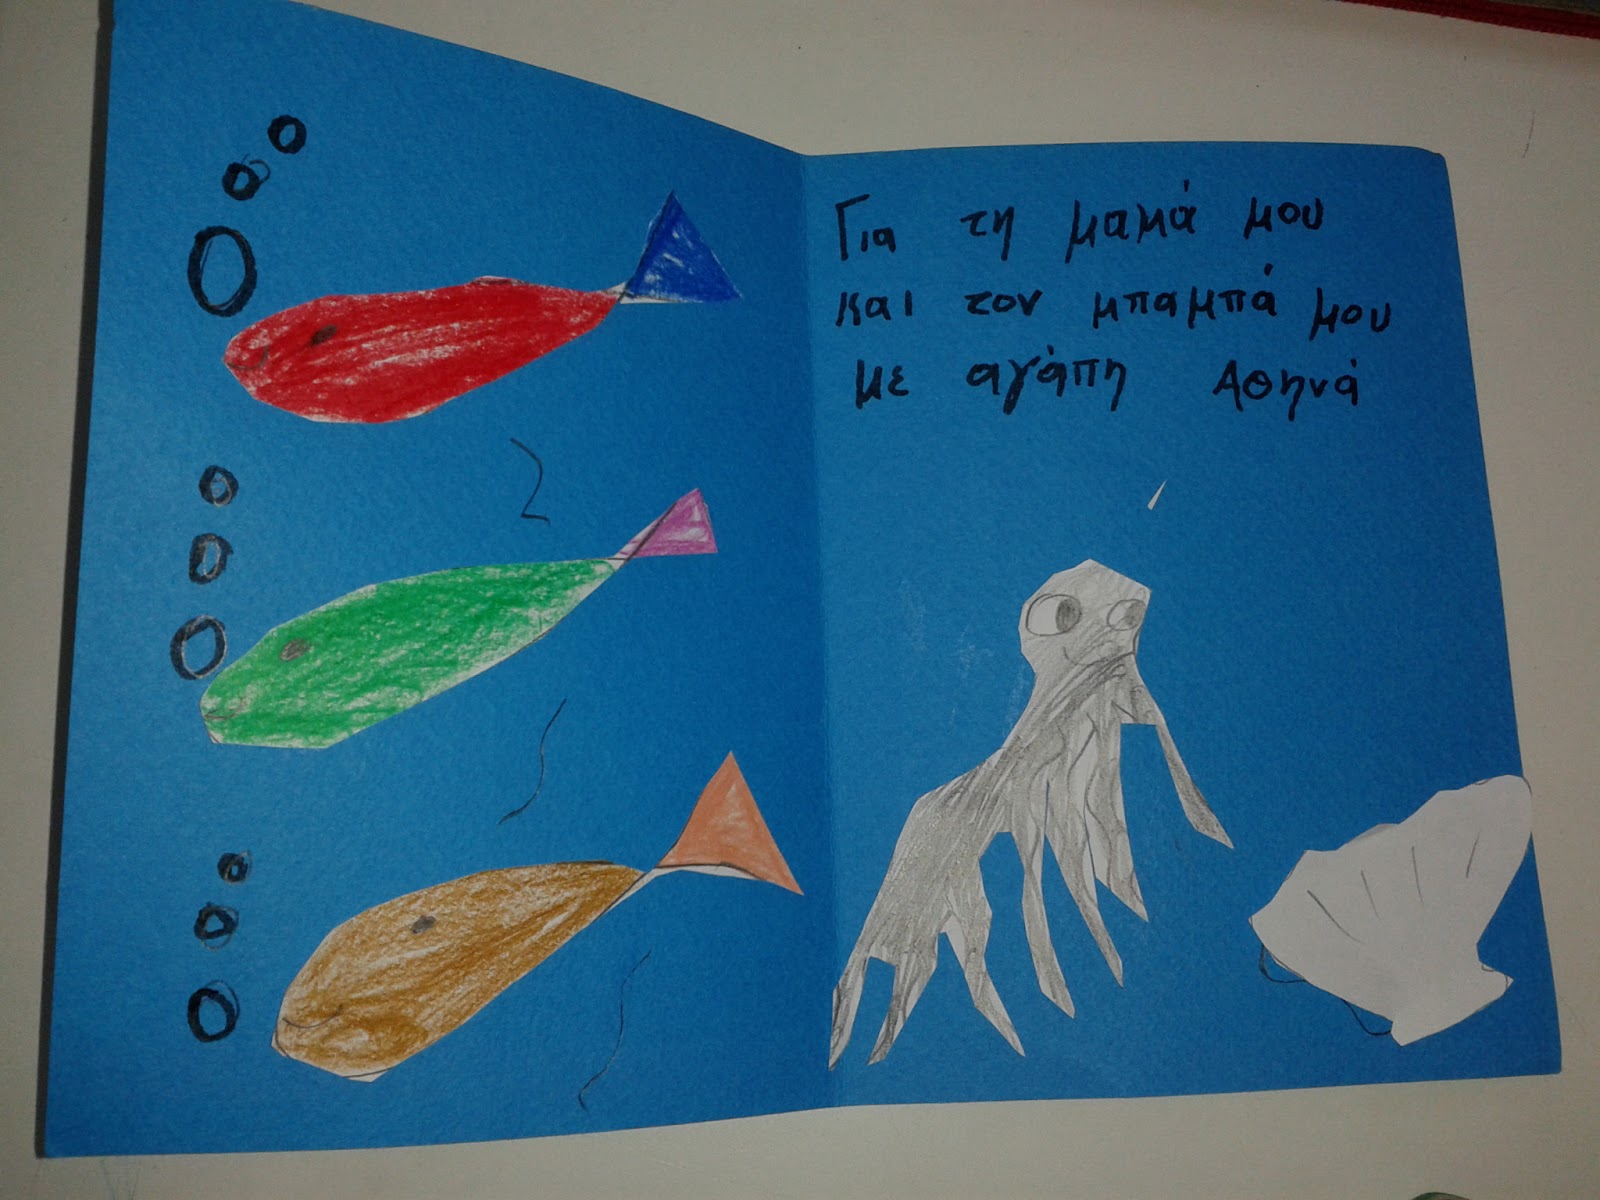 Για τη μαμά μου
και τον μπαμπά μου
με αγάπη Αθηνά